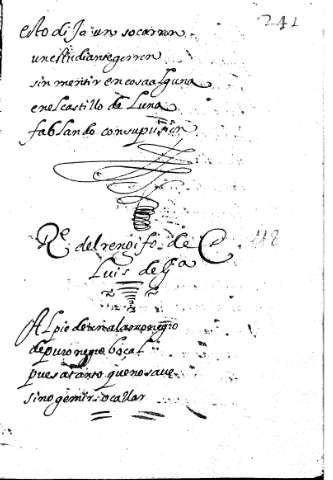 241
esto dijo un socarron
un estudiante gorron
sin mentir en cosa alguna
en el castillo de Luna
fablando con su
Rᵉ. del rengifo. de
118
Luis de Gᵃ
Al pie de un alamo negro
de puro negro bocal
pues a tanto que no saue
sino gemir o callar